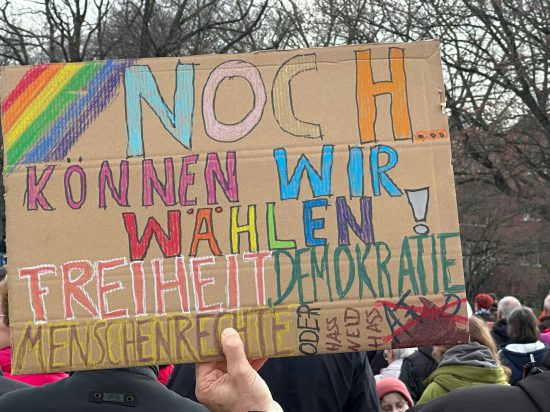 NOCH...
KÖNNEN WIR
WÄHLEN!
FREIHEIT, DEMOKRATIE
MENSCHENRECHTE
ODER
HASS
HASS
AFD